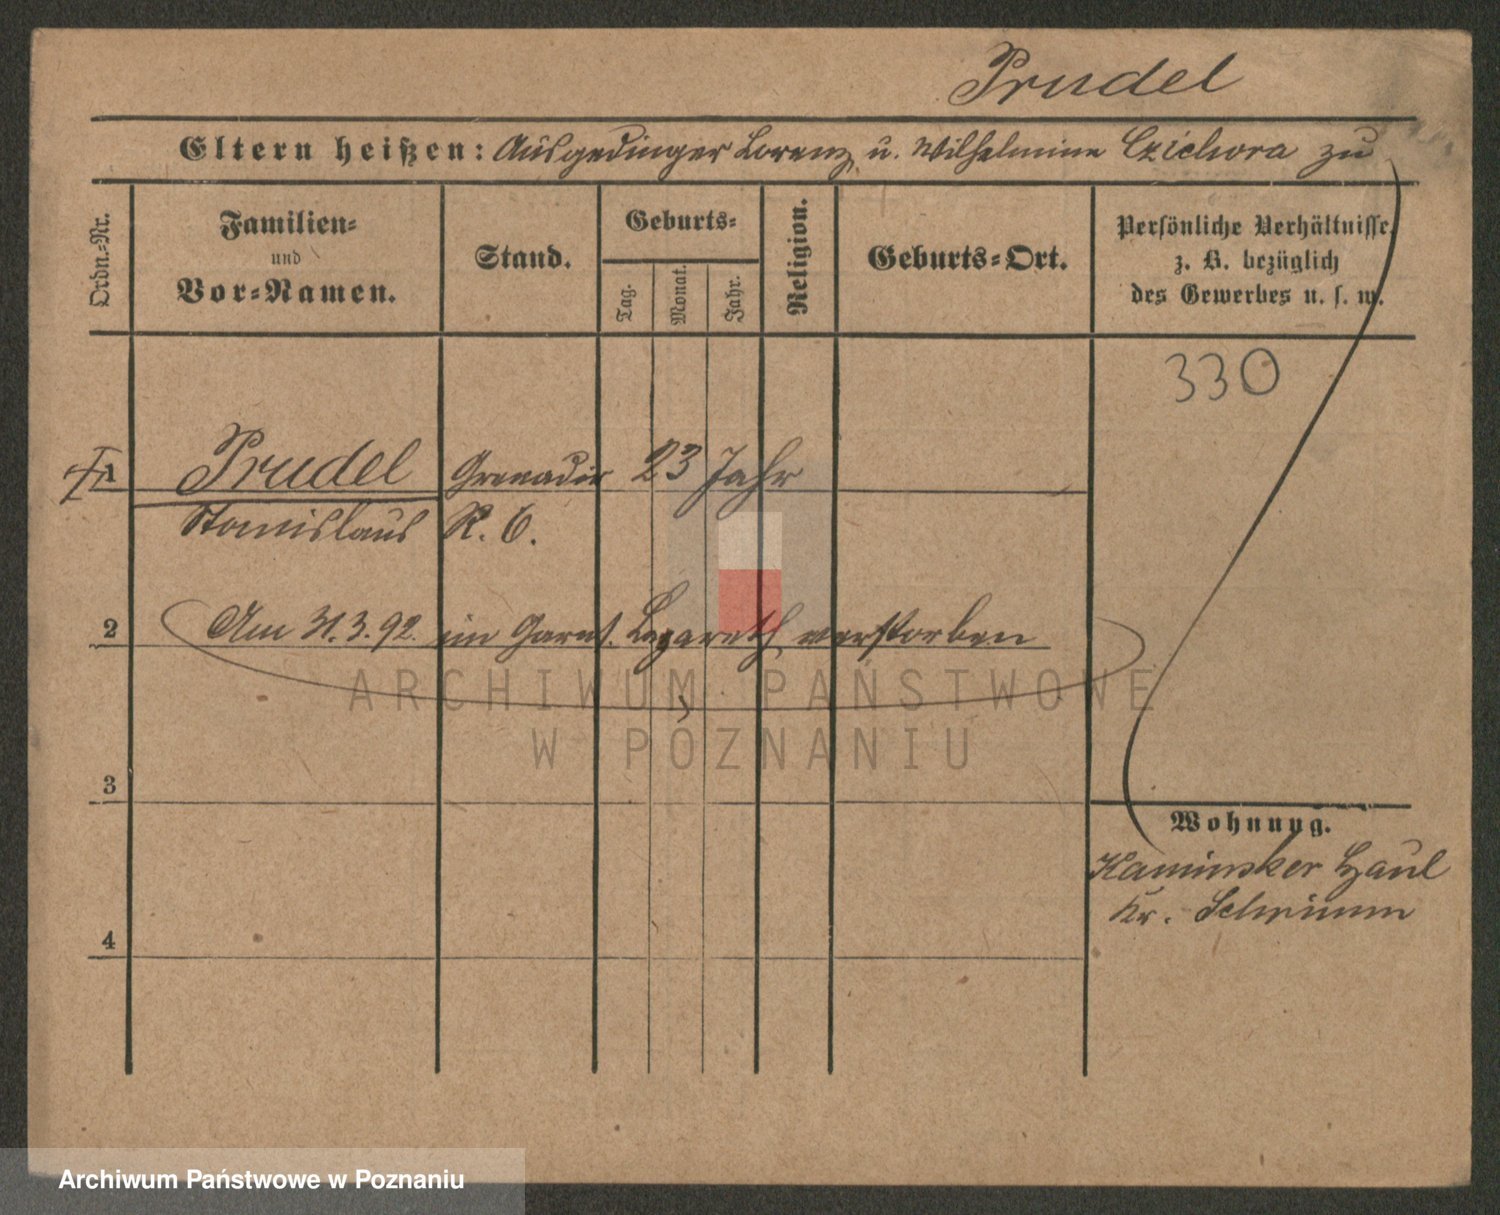 Prudel
Eltern heißen: Ausgedinger Lorenz u. Wilhelmine Czichora zu
Ordn.-Nr.
Familien-
und
Vor-Namen.
Stand.
Geburts-
Tag.
Monat.
Jahr.
Religion.
Geburts-Ort.
Persönliche Verhältnisse,
z. B. bezüglich
des Gewerbes u. s. w.
330
1 Prudel Grenadir 23 Jahr
Stanislaus R. 6.
2 Am 31.3.92. im Garns. Lazareth verstorben
ARCHIWUM PAŃSTWOWE
W POZNANIU
3
Wohnung.
Kaminsker Haul
Kr. Schrimm
4
Archiwum Państwowe w Poznaniu